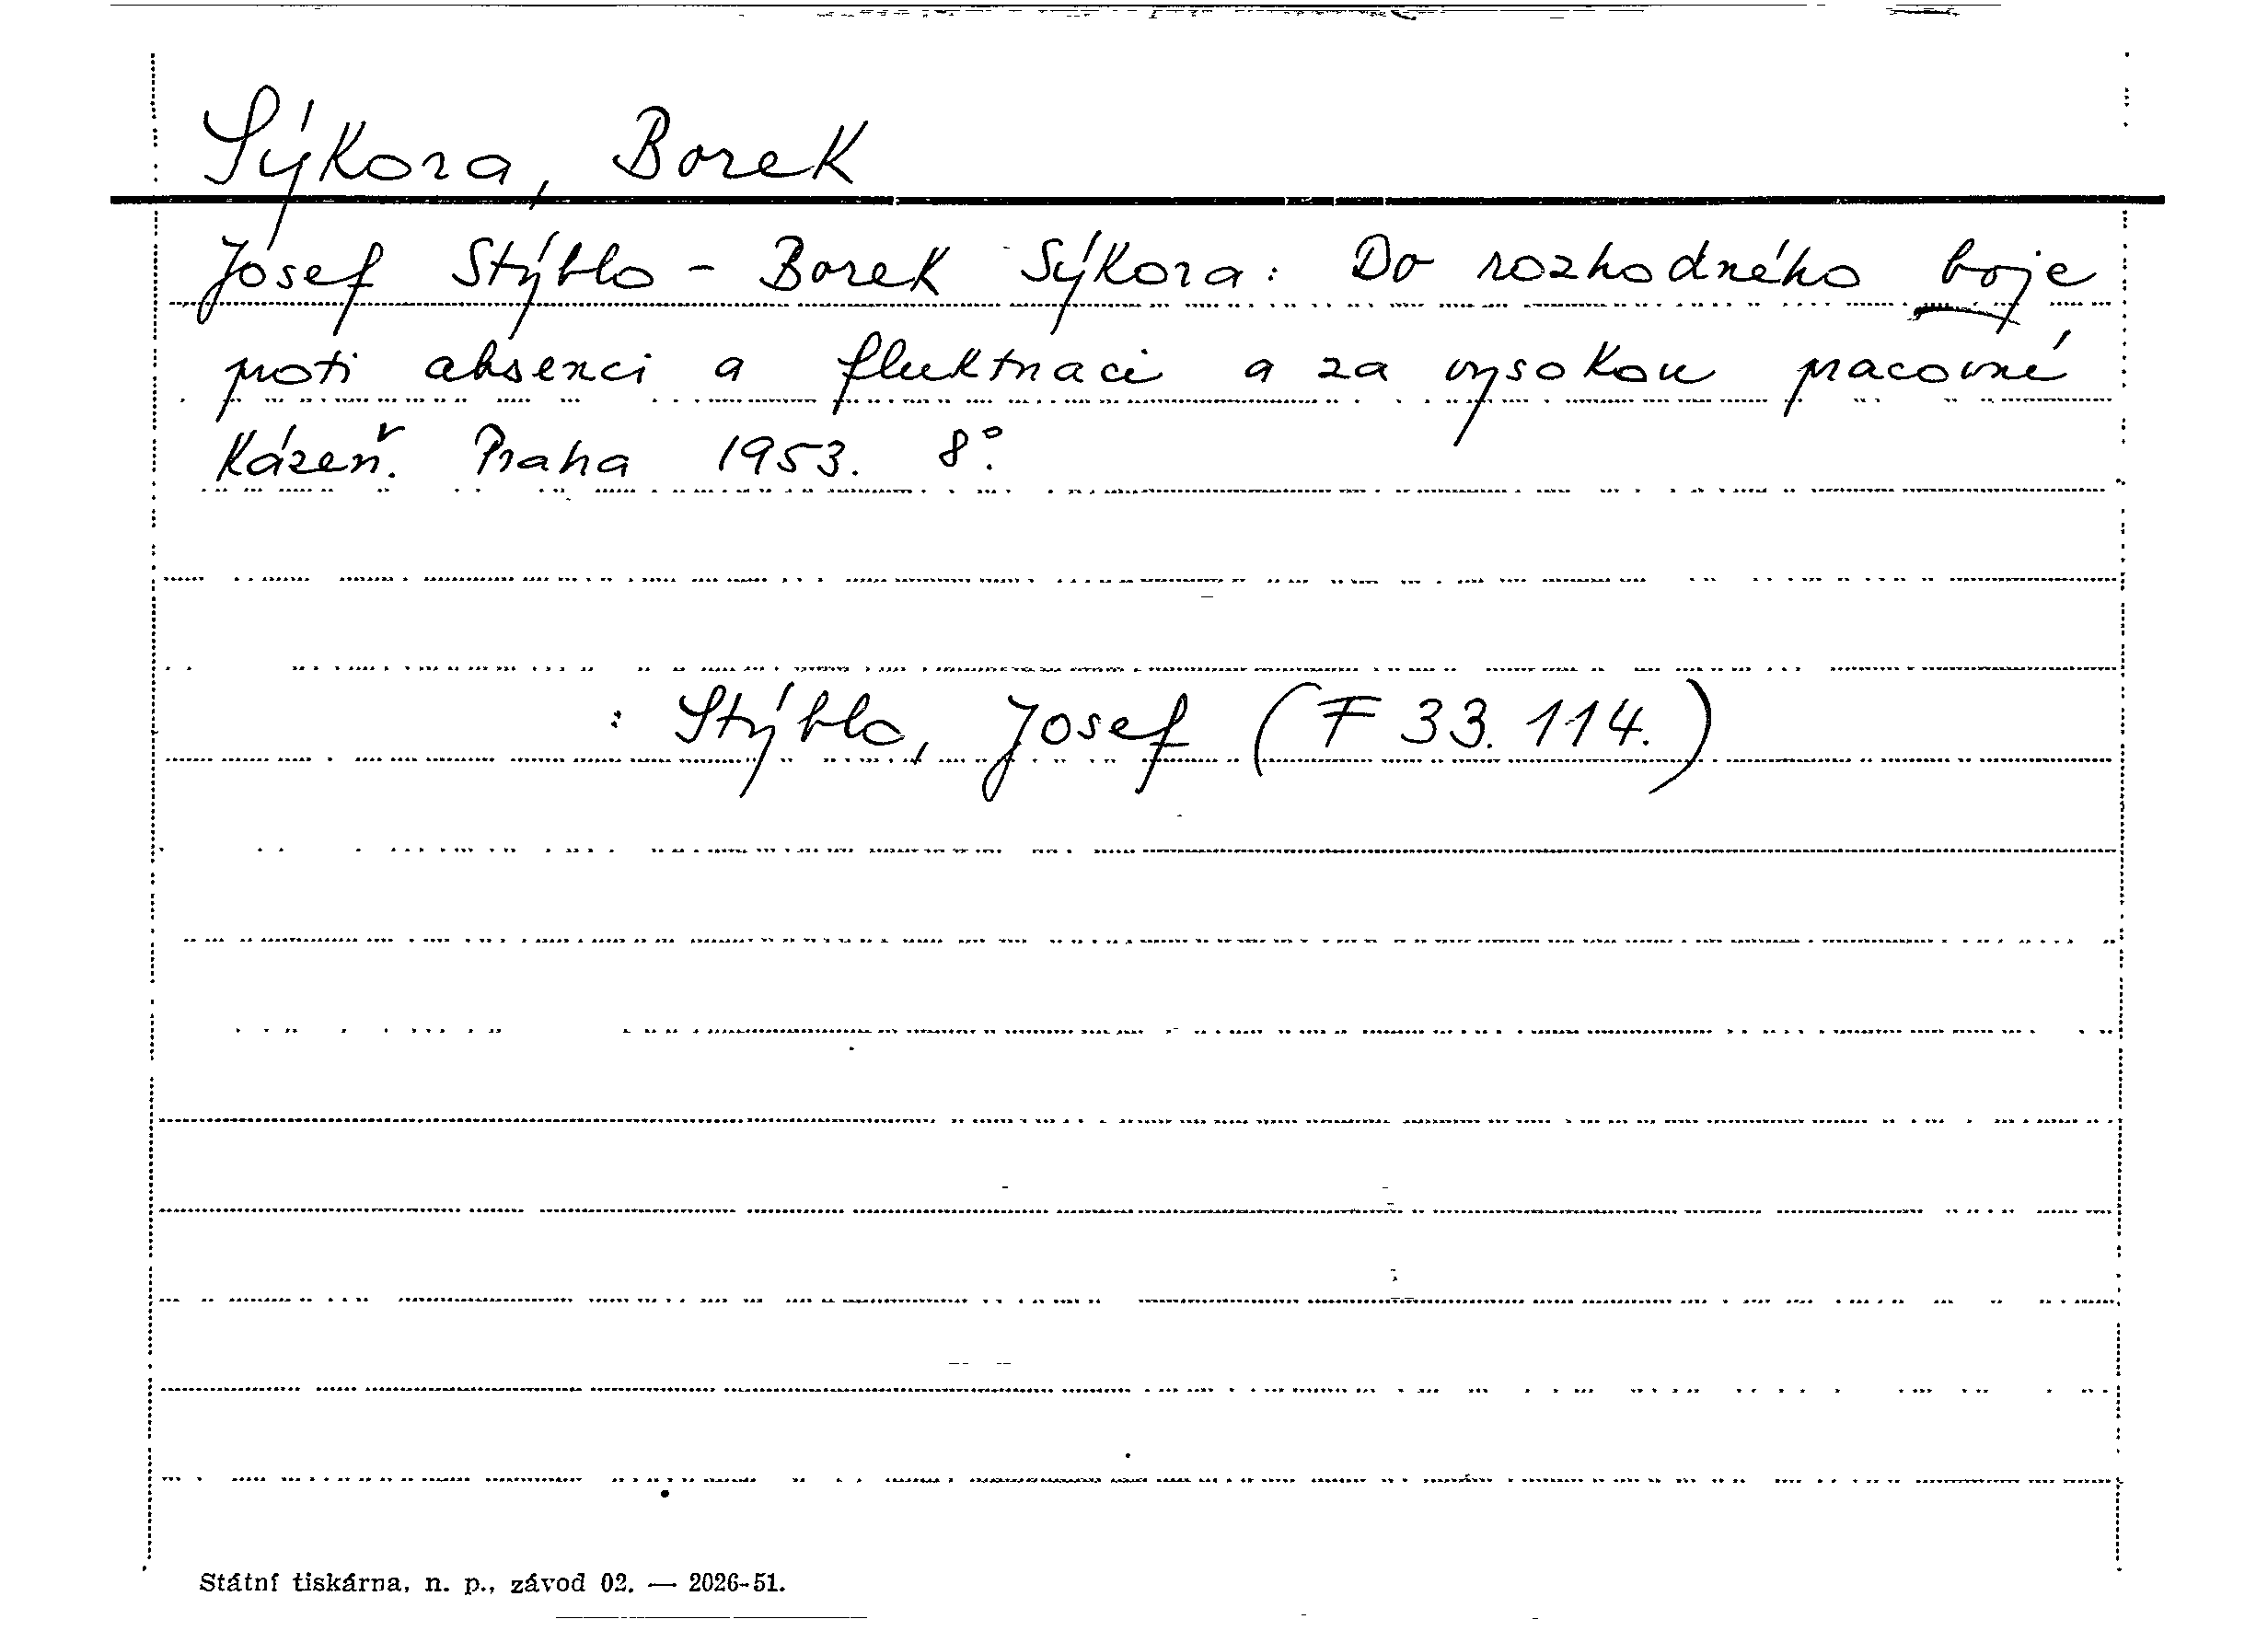 Sýkora, Borek
Josef Stýblo - Borek Sýkora: Do rozhodného boje
proti absenci a fluktuaci a za vysokou pracovné
Kázeň. Praha 1953. 8°.
: Stýblo, Josef (F 33.114.)
Státní tiskárna, n. p., závod 02. — 2026-51.